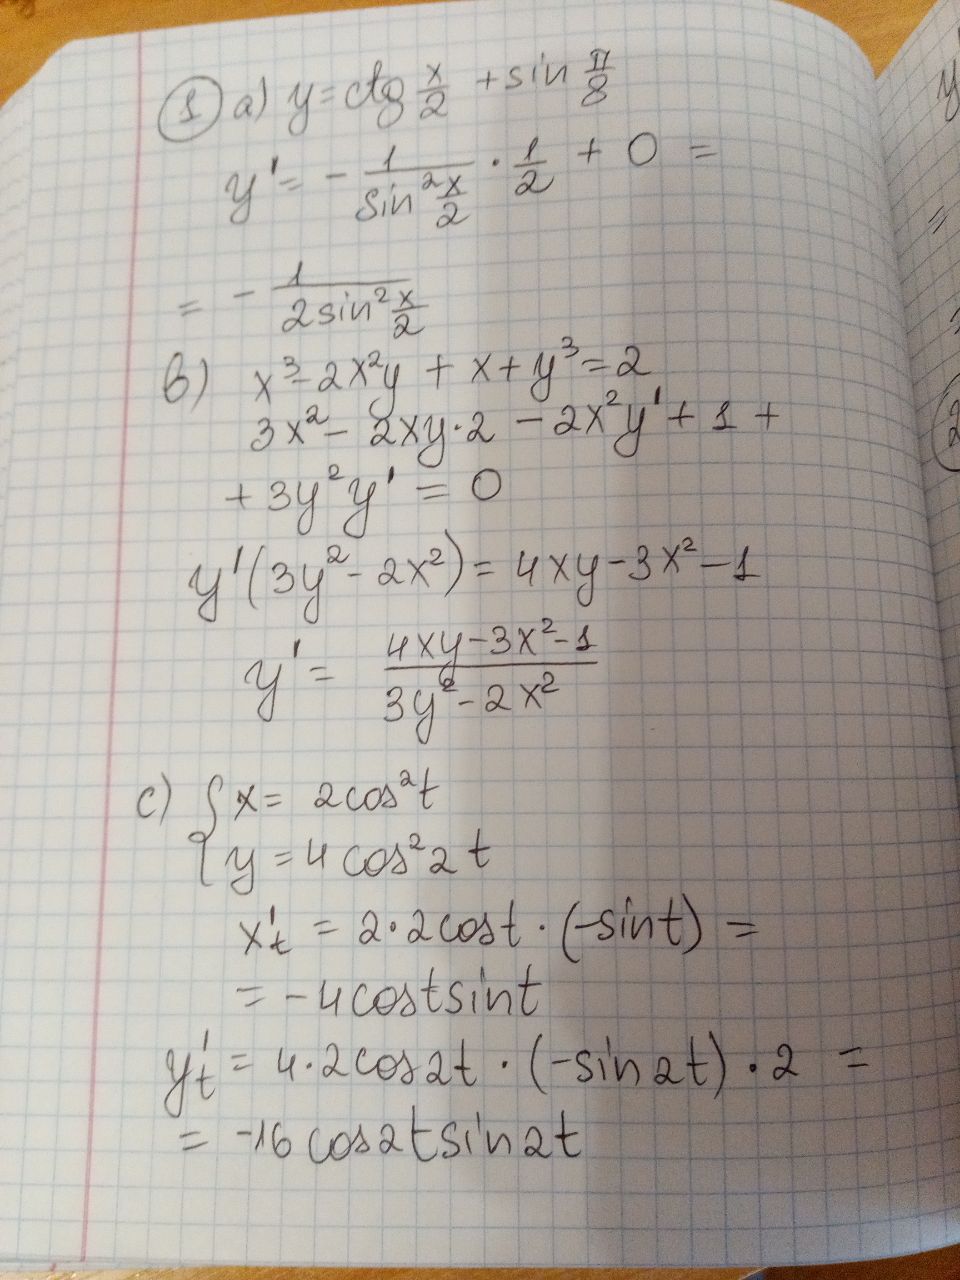 1 a) y = ctg x/2 + sin π/8
y' = - 1/sin² x/2 · 1/2 + 0 =
= - 1/2sin² x/2
b) x³ - 2x²y + x + y³ = 2
3x² - 2xy·2 - 2x²y' + 1 +
+ 3y²y' = 0
y'(3y² - 2x²) = 4xy - 3x² - 1
y' = 4xy - 3x² - 1 / 3y² - 2x²
c) { x = 2cos²t
y = 4cos²2t
x't = 2·2cost·(-sint) =
= -4costsint
y't = 4·2cos2t·(-sin2t)·2 =
= -16cos2tsin2t